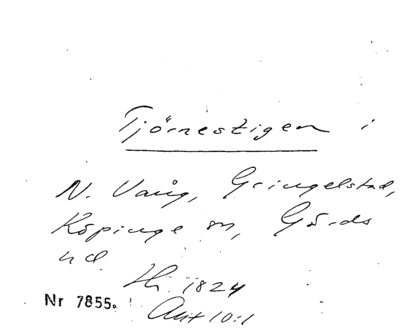 Tjörnestigen i
N. Vång, Gringelstad,
Köpinge sn, Gärds
hd.
Hi. 1824
Nr 7855.
Akt 10:1